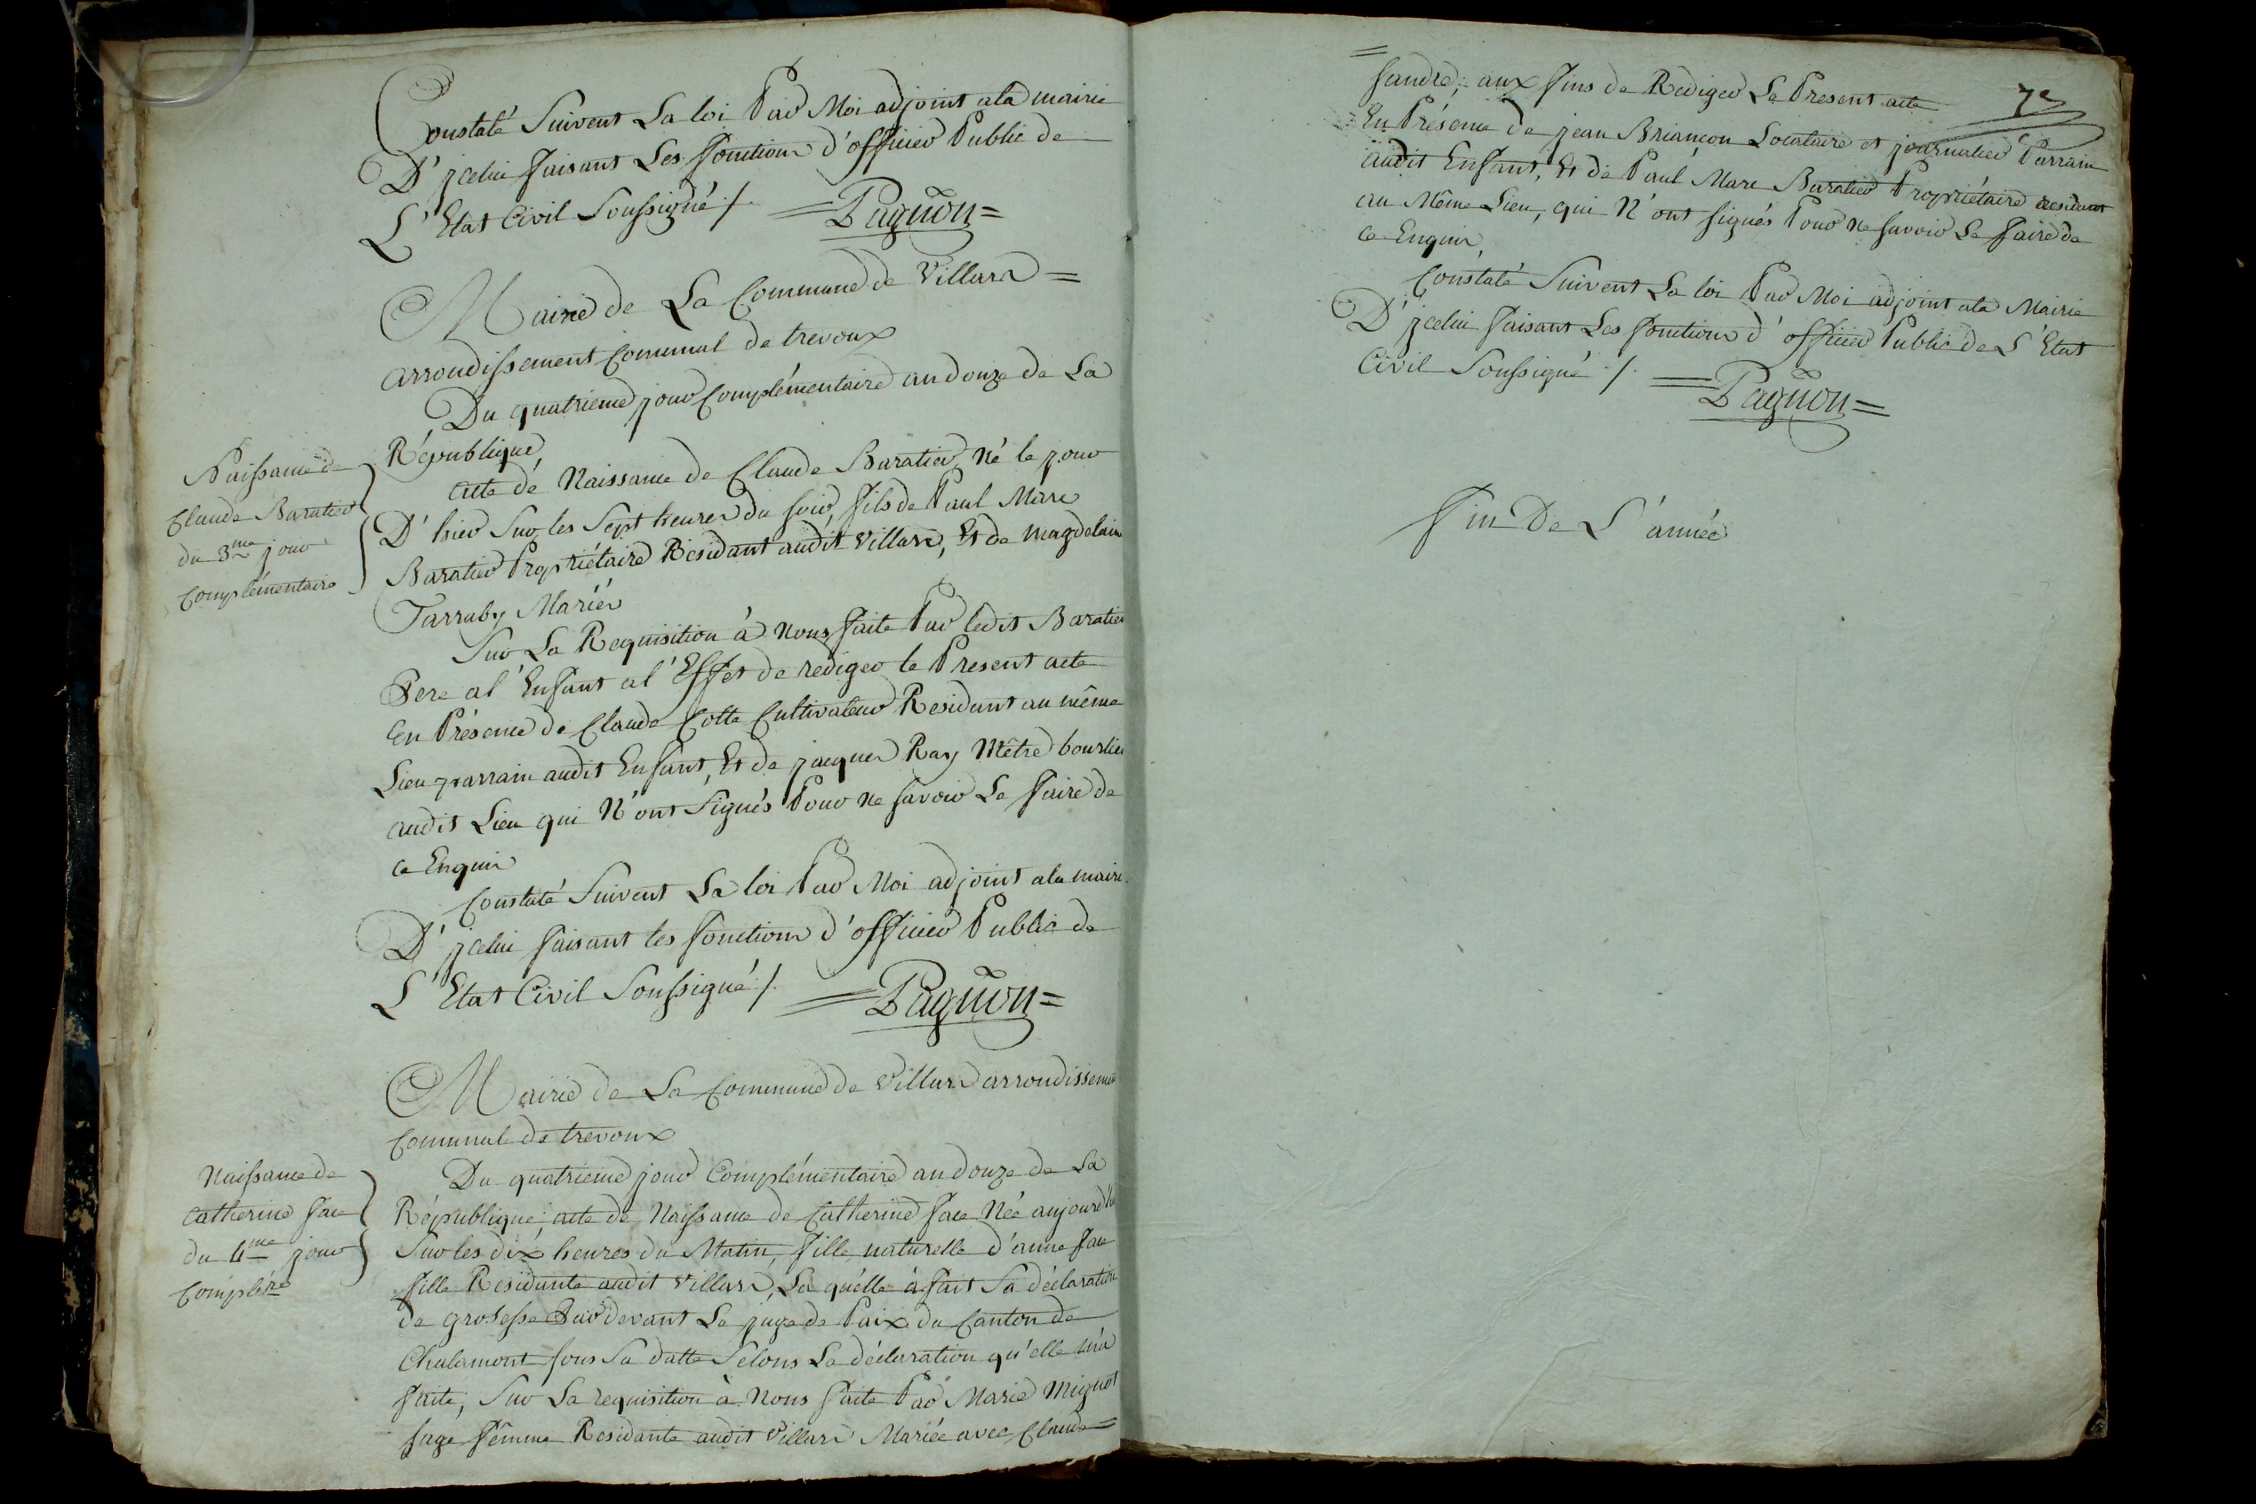 Constaté Suivent La loi Par Moi adjoint ala mairie
D'jcelui faisant Les fonctions d'officier Public de
L'Etat Civil Soussigné ./. =Pagnon=
Mairie de La Commune de Villars =
arrondissement Communal de trevoux
Du quatrieme jour Complémentaire an douze de La
République,
Naissance de
Claude Baratier
du 3me jour
Complémentaire
acte de Naissance de Claude Baratier Né le jour
D'hier Sur les Sept heures du soir, fils de Paul Marc
Baratier Propriétaire Residant audit Villars, Et de magdelaine
Tarraby Mariés
Sur La Requisition à Nous faite Par ledit Baratier
Pere al'Enfant al'Effet de rediger le Present acte
En Présence de Claude Cotte Cultivateur Residant au même
Lieu parrain audit Enfant, Et de jacques Ray Mêtre bourlier
audit Lieu qui N'ont Signés Pour ne savoir Le faire de
ce Enquis
Constaté Suivent La loi Par Moi adjoint ala mairie
D'jcelui faisant les fonctions d'officier Public de
L'Etat Civil Soussigné ./. =Pagnon=
Mairie de La Commune de Villars arrondissement
Communal de trevoux
Naissance de
Catherine face
du 4me jour
Complére
Du quatrieme jour Complémentaire an douze de La
République; acte de Naissance de Catherine face Née aujourd'hui
Sur les dix heures du Matin, fille naturelle d'anne face
fille Residante audit Villars, La quélle à fait Sa déclaration
de grosesse Pardevant Le juge de Paix du Canton de
Chalamont sous Sa datte Sélons La déclaration qu'elle m'a
faite, Sur La requisition à Nous faite Par Marie Mignot
sage fémme Residante audit Villars Mariée avec Claude=
=
sandre, aux fins de Rediger Le Present acte
7e
En Présence de jean Briancon Locataire et journalier Parrain
audit Enfant, Et de Paul Marc Baratier Propriétaire residant
au Même Lieu, qui N'ont signés Pour ne savoir Le faire de
ce Enquis,
Constaté Suivent La loi Par Moi adjoint ala Mairie
D'jcelui faisant Les fonctions d'officier Public de L'Etat
Civil Soussigné ./. =Pagnon=
fin De L'année